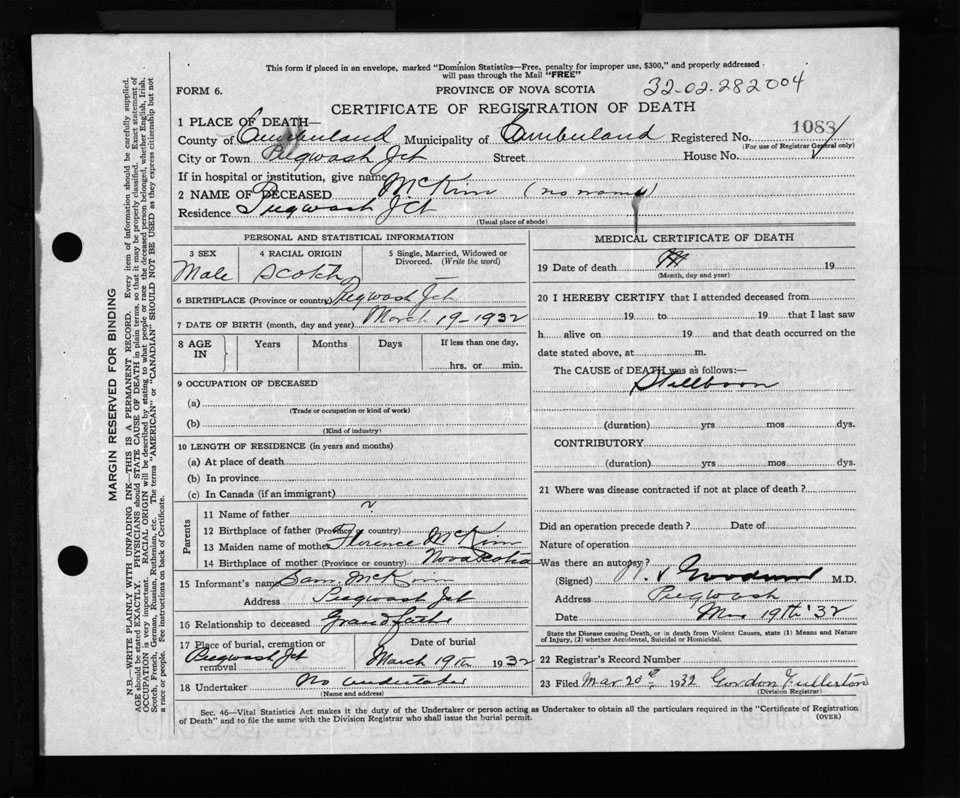 This form if placed in an envelope, marked "Dominion Statistics—Free, penalty for improper use, $300," and properly addressed
will pass through the Mail "FREE"
FORM 6.
PROVINCE OF NOVA SCOTIA
32-02-282004
CERTIFICATE OF REGISTRATION OF DEATH
1 PLACE OF DEATH—
County of Cumberland Municipality of Cumberland Registered No. 1083
(For use of Registrar General only)
City or Town Pugwash Jct Street House No.
If in hospital or institution, give name
2 NAME OF DECEASED McKim (no name)
Residence Pugwash Jct
(Usual place of abode)
PERSONAL AND STATISTICAL INFORMATION
3 SEX 4 RACIAL ORIGIN 5 Single, Married, Widowed or
Divorced. (Write the word)
Male Scotch —
6 BIRTHPLACE (Province or country) Pugwash Jct
7 DATE OF BIRTH (month, day and year) March 19-1932
8 AGE IN Years Months Days If less than one day,
hrs. or min.
9 OCCUPATION OF DECEASED
(a)
(Trade or occupation or kind of work)
(b)
(Kind of industry)
10 LENGTH OF RESIDENCE (in years and months)
(a) At place of death
(b) In province
(c) In Canada (if an immigrant)
Parents
11 Name of father ?
12 Birthplace of father (Province or country)
13 Maiden name of mother Florence McKim
14 Birthplace of mother (Province or country) Nova Scotia
15 Informant's name Sam McKim
Address Pugwash Jct
16 Relationship to deceased Grandfather
17 Place of burial, cremation or removal Date of burial
Pugwash Jct March 19th 1932
18 Undertaker No undertaker
(Name and address)
MEDICAL CERTIFICATE OF DEATH
19 Date of death 19
(Month, day and year)
20 I HEREBY CERTIFY that I attended deceased from
19 to 19 that I last saw
h alive on 19 and that death occurred on
date stated above, at m.
The CAUSE of DEATH was as follows:—
Stillborn
(duration) yrs mos dys.
CONTRIBUTORY
(duration) yrs mos dys.
21 Where was disease contracted if not at place of death?
Did an operation precede death? Date of
Nature of operation
Was there an autopsy?
(Signed) M.D.
Address Pugwash
Date Mar 19th '32
State the Disease causing Death, or in death from Violent Causes, state (1) Means and Nature
of Injury, (2) whether Accidental, Suicidal or Homicidal.
22 Registrar's Record Number
23 Filed Mar 20 1932 Gordon Fullerton
(Division Registrar)
Sec. 46—Vital Statistics Act makes it the duty of the Undertaker or person acting as Undertaker to obtain all the particulars required in the "Certificate of Registration
of Death" and to file the same with the Division Registrar who shall issue the burial permit.
(OVER)
MARGIN RESERVED FOR BINDING
N.B.—WRITE PLAINLY WITH UNFADING INK—THIS IS A PERMANENT RECORD. Every item of information should be carefully supplied.
AGE should be stated EXACTLY. PHYSICIANS should STATE CAUSE OF DEATH in plain terms, so that it may be properly classified. Exact statement of
OCCUPATION is very important. RACIAL ORIGIN will be described by stating to what people or race the deceased person belonged, whether English, Irish,
Scotch, French, German, Russian, Ruthenian, etc. The terms "AMERICAN" or "CANADIAN" SHOULD NOT BE USED as they express citizenship but not
a race or people. See instructions on back of Certificate.